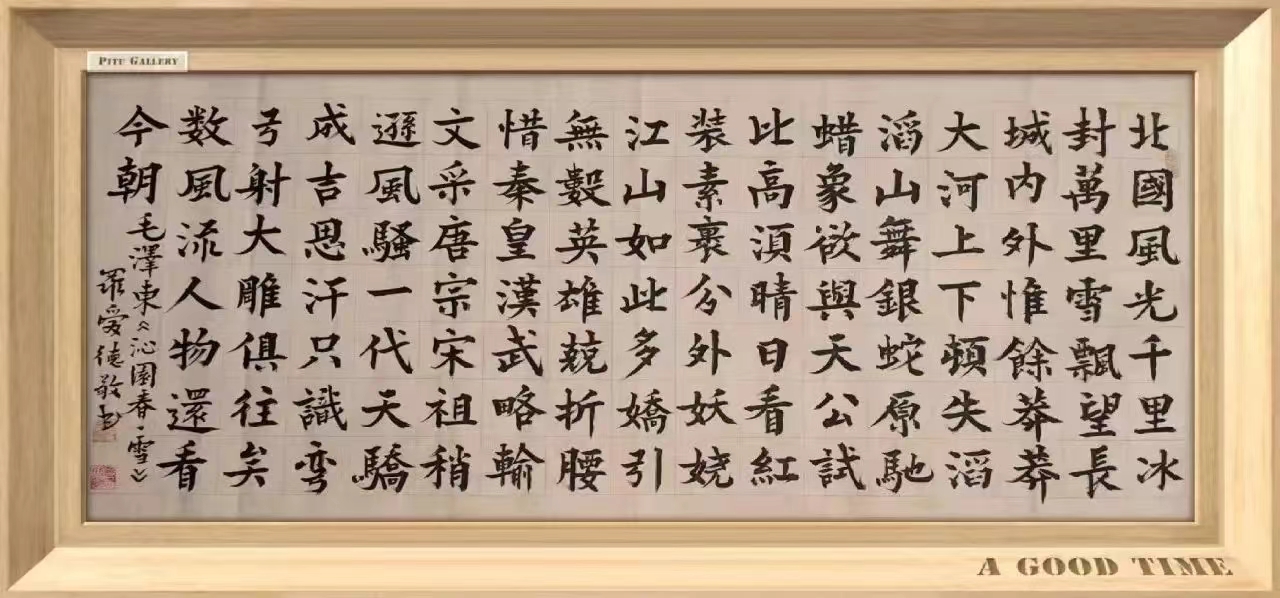 PITU GALLERY
北國風光千里冰
封萬里雪飄望長
城内外惟餘莽莽
大河上下頓失滔
滔山舞銀蛇原馳
蜡象欲與天公試
比高湏晴日看紅
装素裹分外妖娆
江山如此多嬌引
無數英雄兢折腰
惜秦皇漢武略輸
文采唐宗宋祖稍
遜風騷一代天驕
成吉思汗只識弯
弓射大雕俱往矣
数風流人物還看
今朝
毛澤東《沁園春·雪》
羅爱德敬书
A GOOD TIME